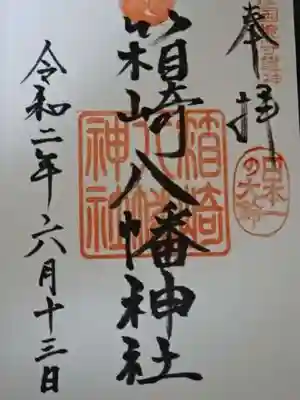 奉拝
日本一の大鈴
箱崎八幡神社
箱崎八幡神社
令和二年六月十三日